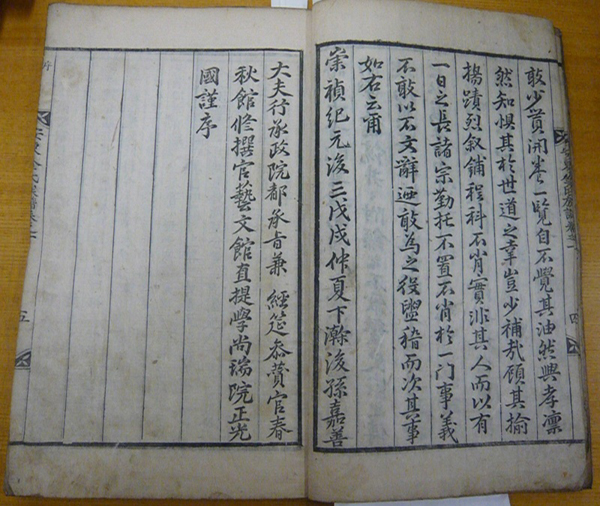 敢少賁開卷一覽自不覺其油然興孝凛
然知惧其於世道之幸豈少補㢤顧其揄
揚蹟烈叙鋪程科不肖實非其人而以有
一日之長諸宗勤托不置不肖於一门事義
不敢以不文辭迺敢為之役盥稽而次其事
如右云爾
崇禎紀元後三戊戌仲夏下澣後孫嘉善
四
大夫行承政院都承旨兼 經筵叅賛官春
秋館修撰官藝文館直提學尚瑞院正光
國謹序
五